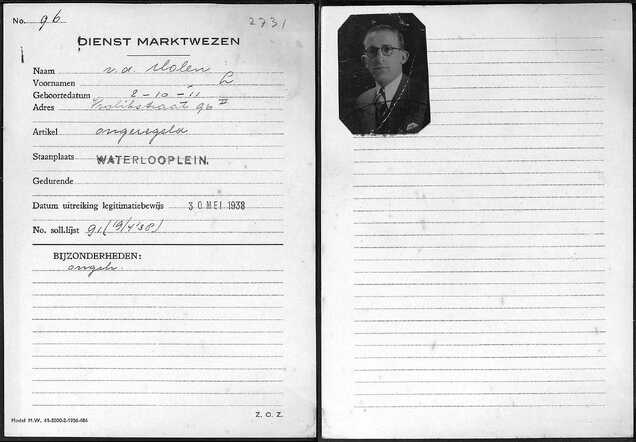 No. 96
2731
DIENST MARKTWEZEN
Naam v.d. Molen
Voornamen L
Geboortedatum 2-10-'11
Adres 96 II
Artikel ongeregeld
Staanplaats WATERLOOPLEIN.
Gedurende
Datum uitreiking legitimatiebewijs 30 MEI 1938
No. soll.lijst 91 (19/4 '38)
BIJZONDERHEDEN:
ongeh.
Model M.W. 41-2000-2-1936-686
Z. O. Z.